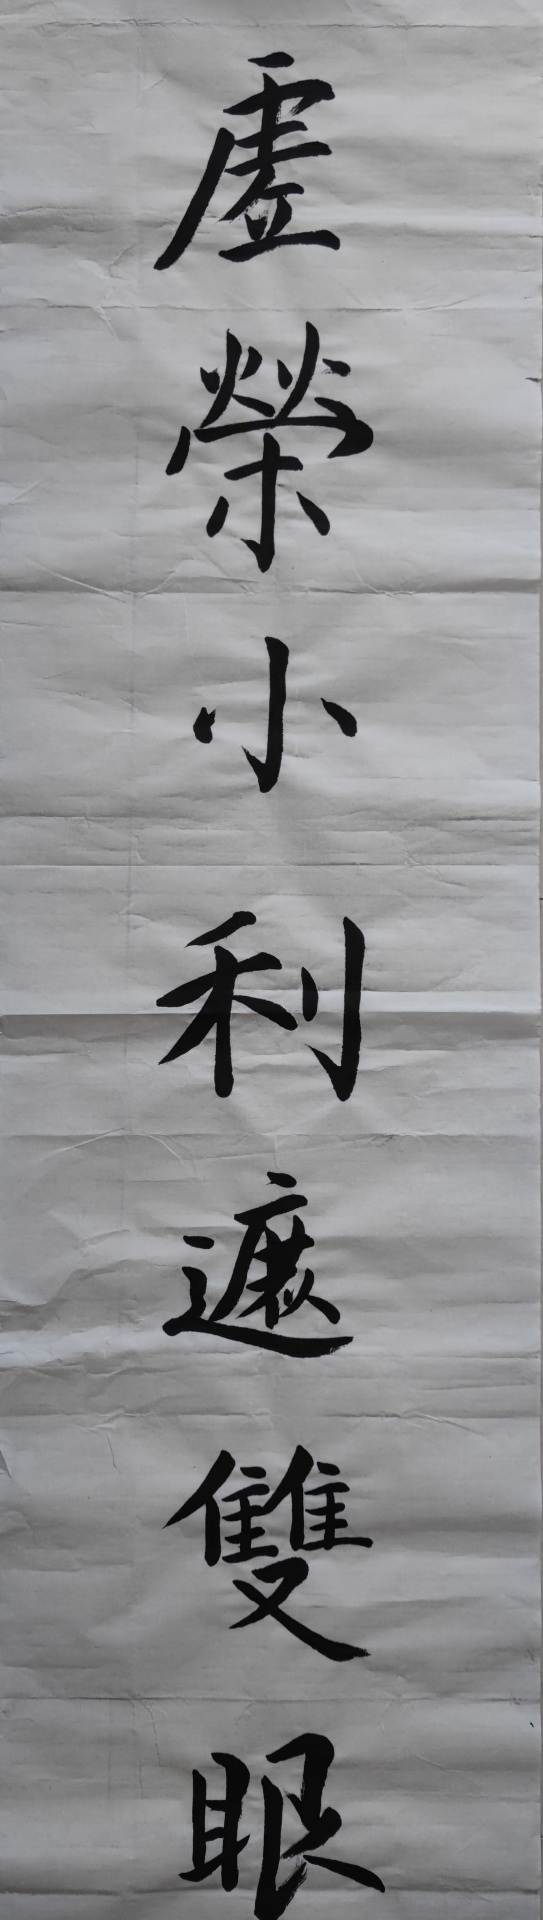 虛榮小利遮雙眼